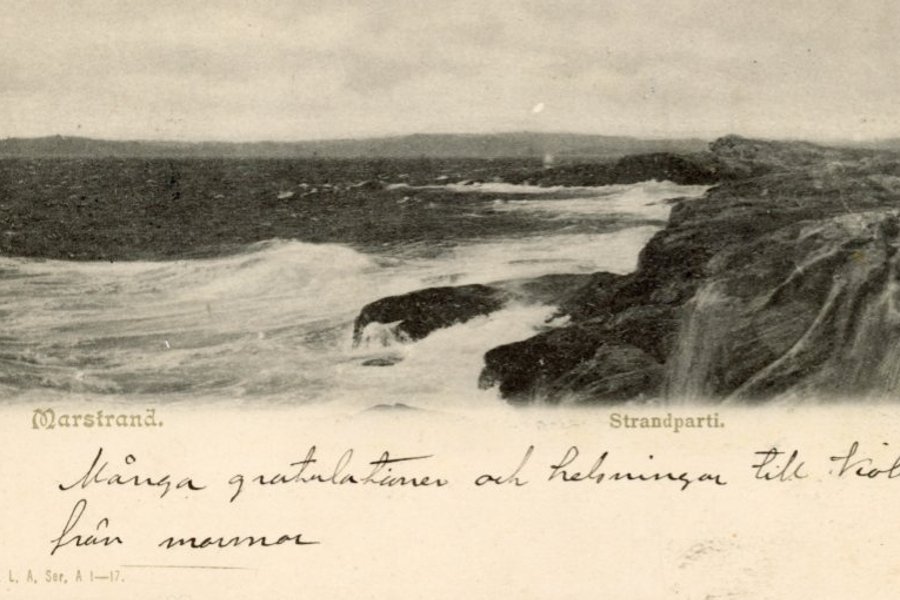 Marstrand. Strandparti.
Många gratulationer och helsningar till Viol
från mormor
L. A. Ser. A 1—17.